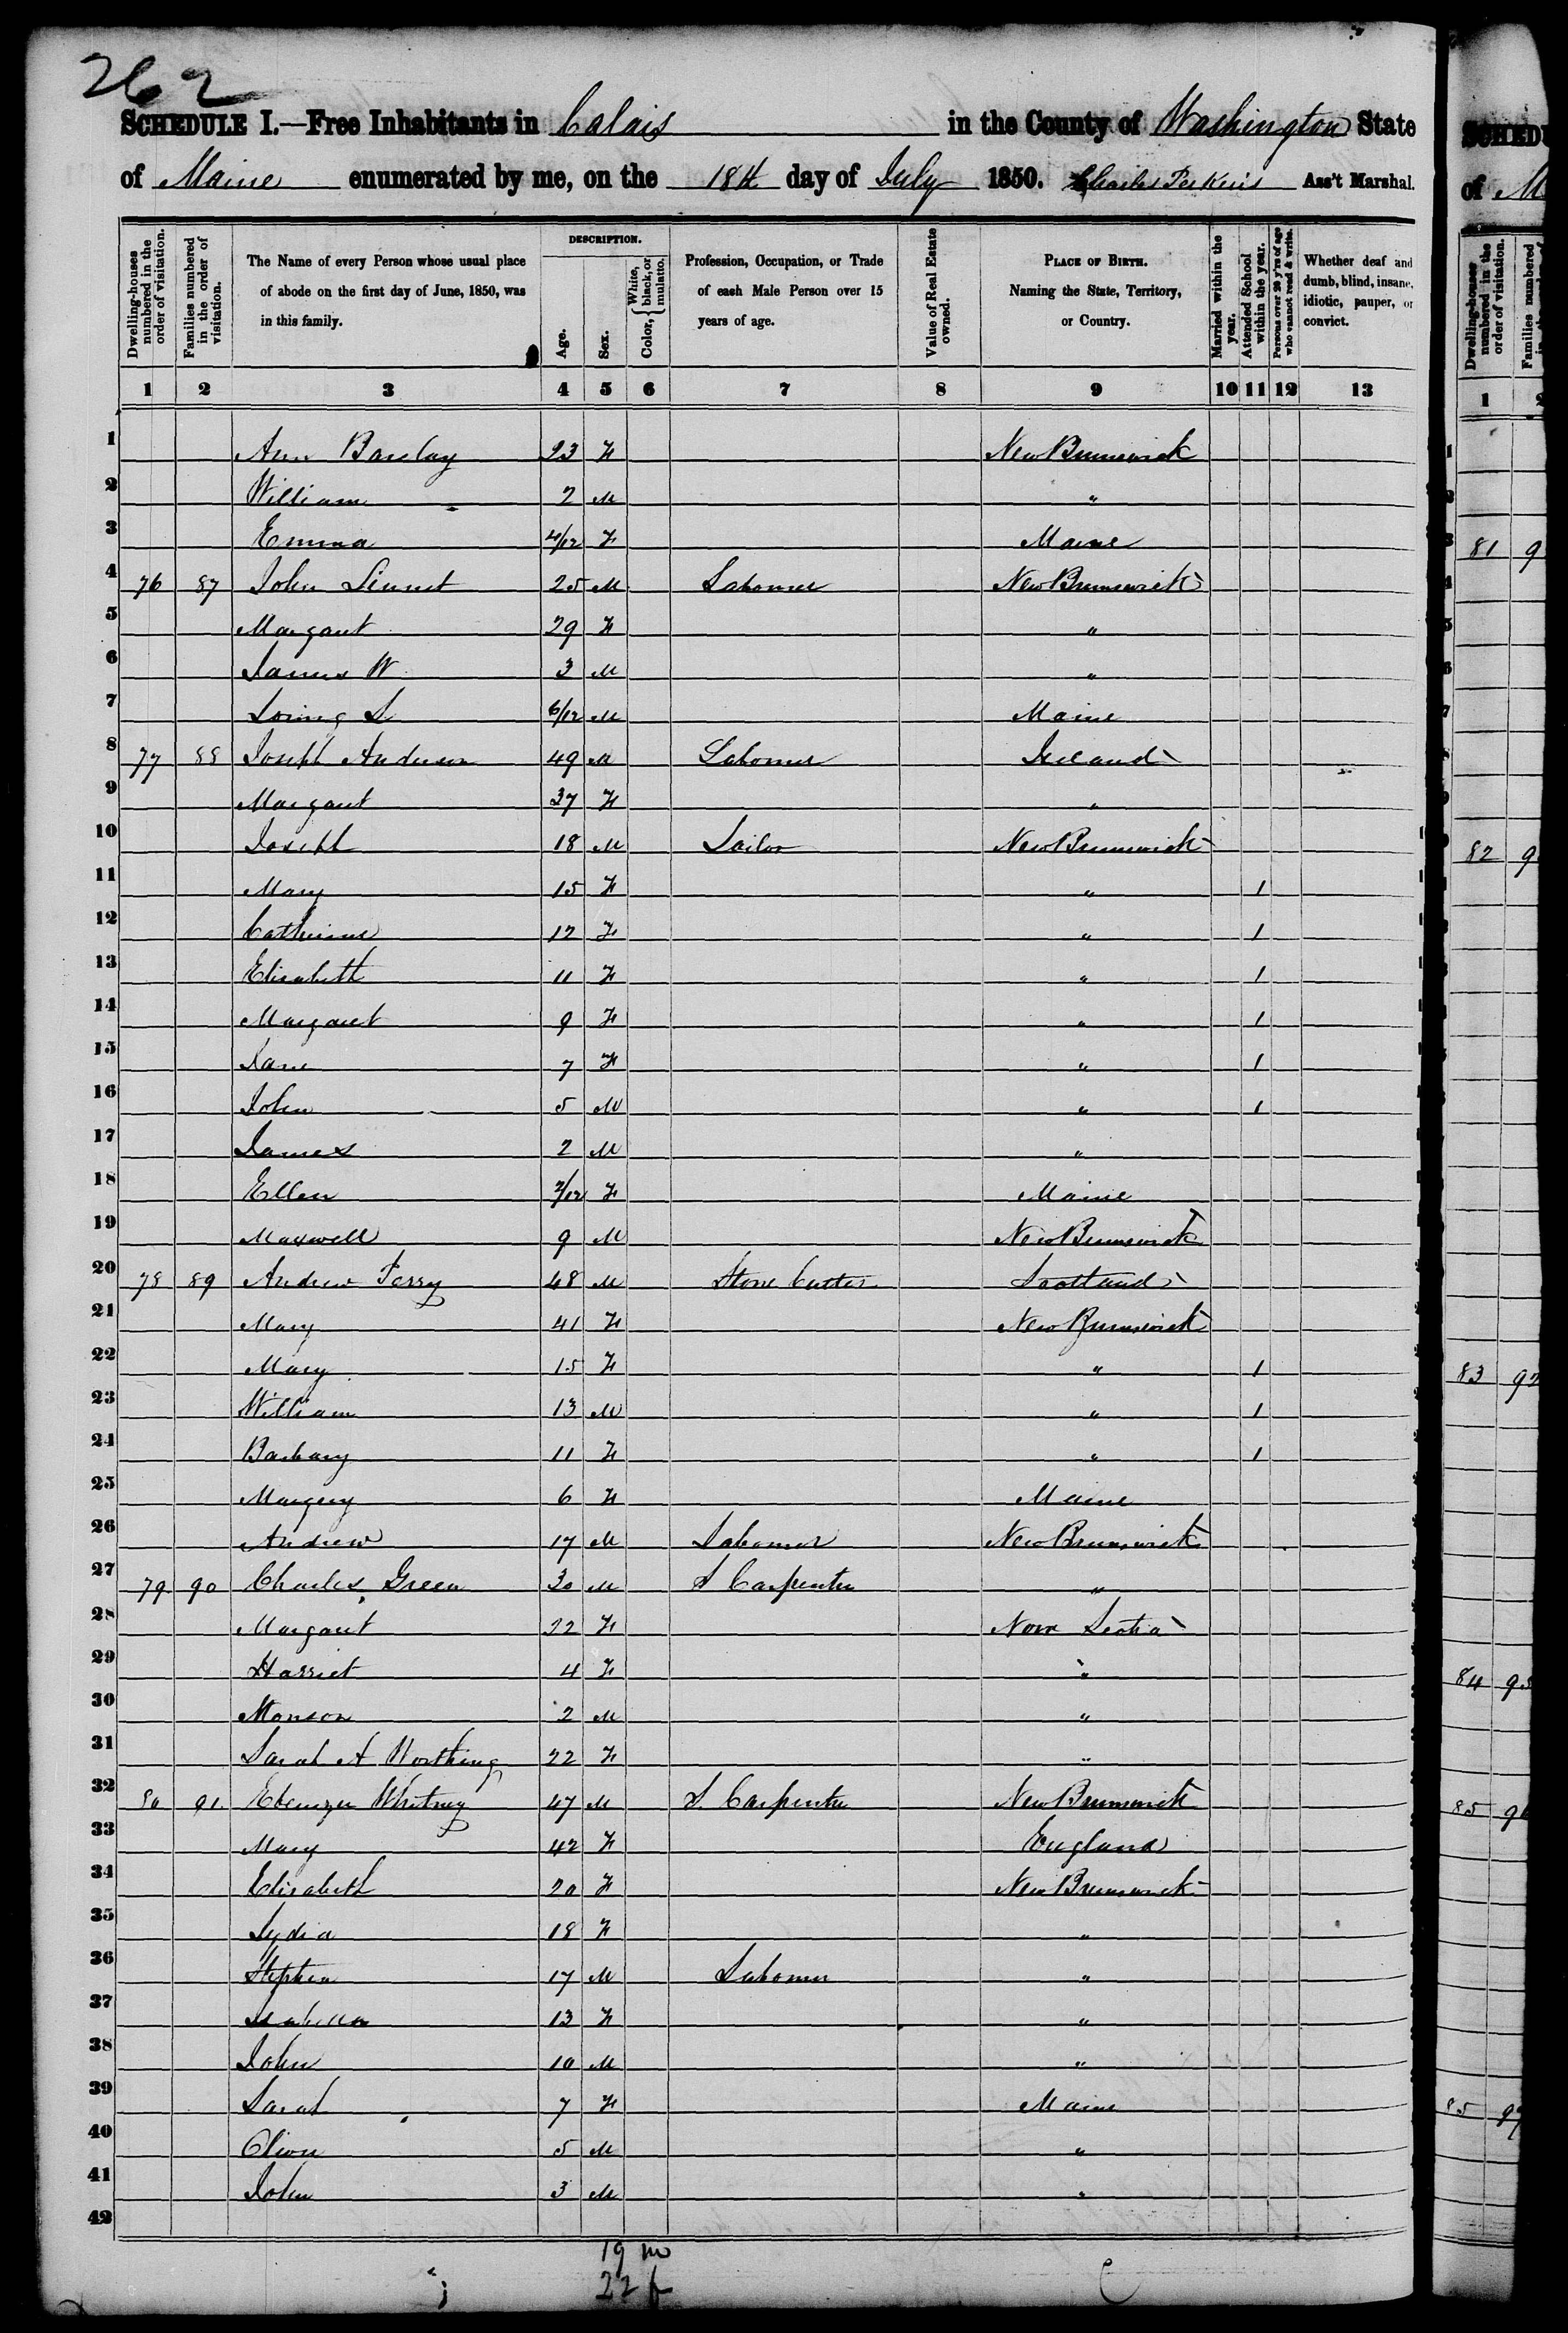 262
SCHEDULE I.—Free Inhabitants in Calais in the County of Washington State
of Maine enumerated by me, on the 18th day of July 1850. Charles Perkins Ass't Marshal.
Dwelling-houses numbered in the order of visitation.
Families numbered in the order of visitation.
The Name of every Person whose usual place of abode on the first day of June, 1850, was in this family.
DESCRIPTION.
Age.
Sex.
Color, { White, black, or mulatto.
Profession, Occupation, or Trade of each Male Person over 15 years of age.
Value of Real Estate owned.
PLACE OF BIRTH. Naming the State, Territory, or Country.
Married within the year.
Attended School within the year.
Persons over 20 y'rs of age who cannot read & write.
Whether deaf and dumb, blind, insane, idiotic, pauper, or convict.
1 2 3 4 5 6 7 8 9 10 11 12 13
1 Ann Barclay 23 F New Brunswick
2 William 2 M "
3 Emma 4/12 F Maine
4 76 87 John 25 M Labourer New Brunswick
5 Margaret 29 F "
6 James W 3 M "
7 Loring S 6/12 M Maine
8 77 88 Joseph Anderson 49 M Labourer Ireland
9 Margaret 37 F "
10 Joseph 18 M Sailor New Brunswick
11 Mary 15 F " 1
12 Catherine 12 F " 1
13 Elisabeth 11 F " 1
14 Margaret 9 F " 1
15 Jane 7 F " 1
16 John 5 M " 1
17 James 2 M "
18 Ellen F Maine
19 Maxwell 9 M New Brunswick
20 78 89 Andrew Perry 48 M Stone Cutter Scotland
21 Mary 41 F New Brunswick
22 Mary 15 F " 1
23 William 13 M " 1
24 Barbary 11 F " 1
25 Margery 6 F Maine
26 Andrew 17 M Labourer New Brunswick
27 79 90 Charles Green 30 M S Carpenter "
28 Margaret 22 F Nova Scotia
29 Harriet 4 F "
30 Monson 2 M "
31 Sarah A Worthing 22 F "
32 80 91 Ebenezer Whitney 47 M S. Carpenter New Brunswick
33 Mary 42 F England
34 Elisabeth 20 F New Brunswick
35 Lydia 18 F "
36 Stephen 17 M Labourer "
37 Isabella 13 F "
38 John 10 M "
39 Sarah 7 F Maine
40 Oliver 5 M "
41 John 3 M "
42
19 m
22 f
SCHEDU
of M
Dwelling-houses numbered in the order of visitation.
Families numbered
1
81 9
82 9
83 92
84 9
85 9
85 97